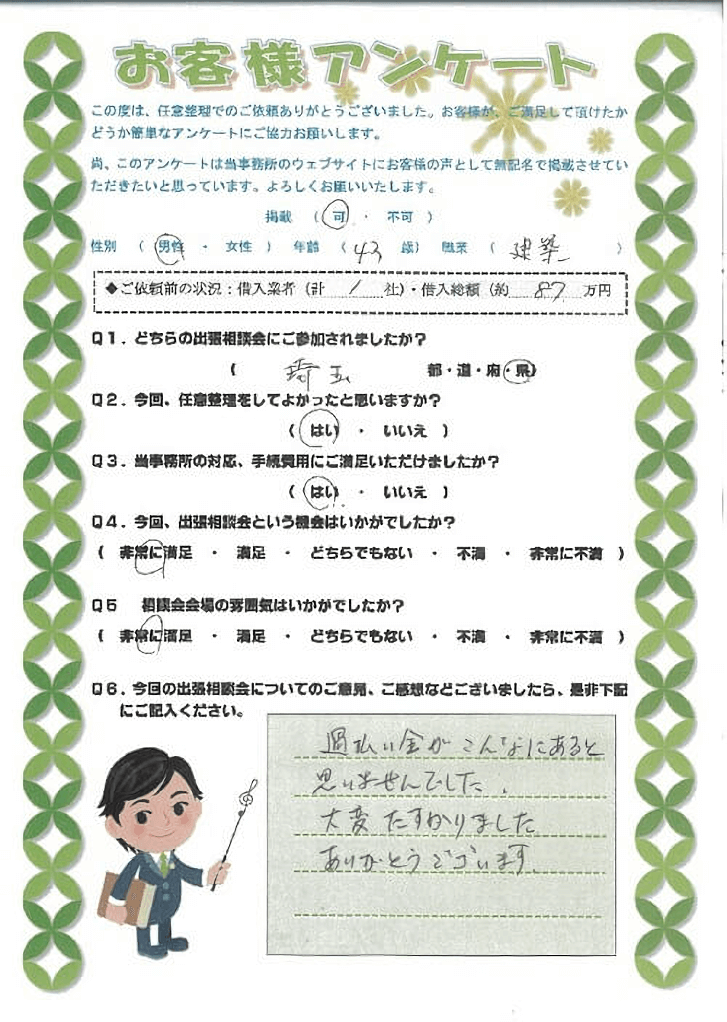 お客様アンケート
この度は、任意整理でのご依頼ありがとうございました。お客様が、ご満足して頂けたか
どうか簡単なアンケートにご協力お願いします。
尚、このアンケートは当事務所のウェブサイトにお客様の声として無記名で掲載させてい
ただきたいと思っています。よろしくお願いいたします。
掲載 （ 可 ・ 不可 ）
性別 （ 男性 ・ 女性 ） 年齢 （ 43 歳） 職業 （ 建築 ）
◆ご依頼前の状況：借入業者（計 1 社）・借入総額（約 87 万円
Q1．どちらの出張相談会にご参加されましたか？
（ 埼玉 都・道・府・県）
Q2．今回、任意整理をしてよかったと思いますか？
（ はい ・ いいえ ）
Q3．当事務所の対応、手続費用にご満足いただけましたか？
（ はい ・ いいえ ）
Q4．今回、出張相談会という機会はいかがでしたか？
（ 非常に満足 ・ 満足 ・ どちらでもない ・ 不満 ・ 非常に不満 ）
Q5 相談会会場の雰囲気はいかがでしたか？
（ 非常に満足 ・ 満足 ・ どちらでもない ・ 不満 ・ 非常に不満 ）
Q6．今回の出張相談会についてのご意見、ご感想などございましたら、是非下記
にご記入ください。
過払い金がこんなにあると
思いませんでした.
大変たすかりました
ありがとうございます.